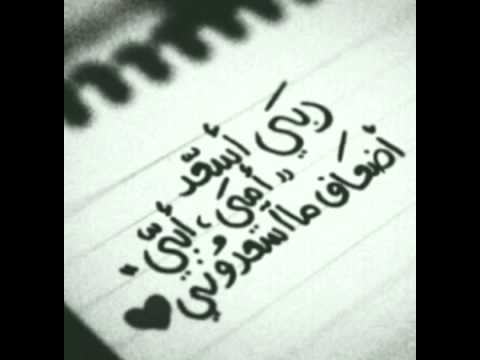 ربي أسعد
"أمي، أبي"
أضعاف ما اسعدوني